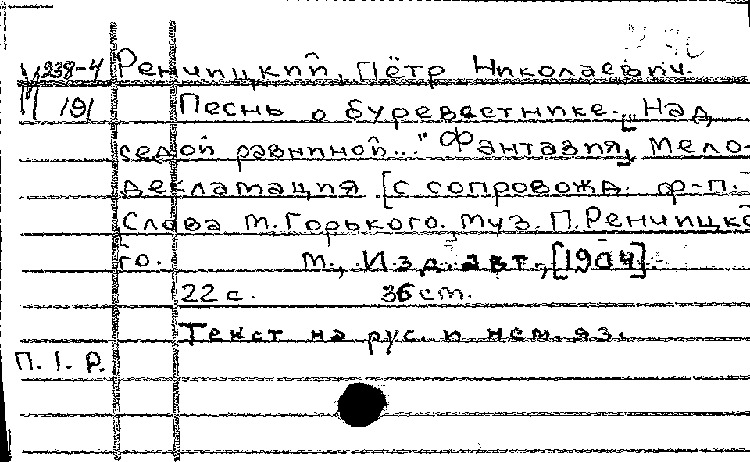 У238-4 Ренчицкий, Пётр Николаевич.
191 Песнь о буревестнике. „Над
седой равниной..." Фантазия, мело-
декламация [с сопровожд. ф-п.]
Слова М. Горького. Муз. П. Ренчицко
го. М., Изд. авт., [1904].
22 с. 36 см.
Текст на рус. и нем. яз.
П. I. Р.